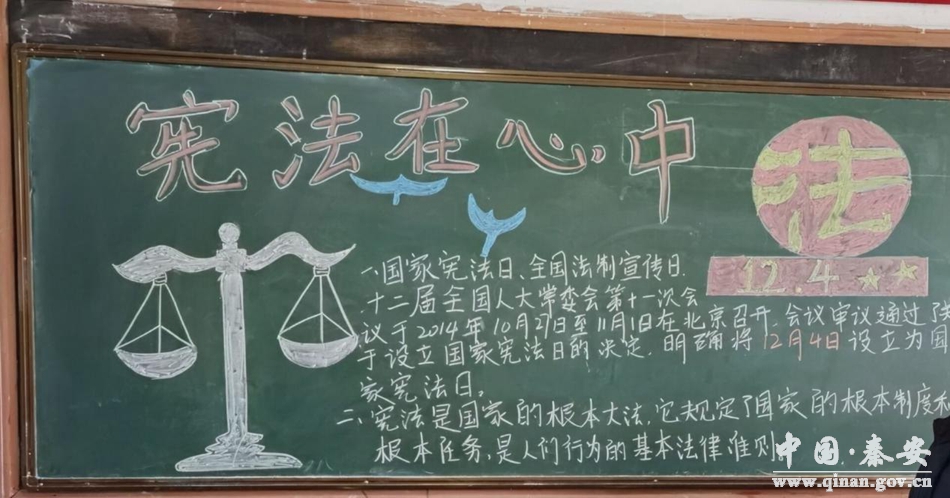 宪法在心中
法
12.4
一、国家宪法日、全国法制宣传日
十二届全国人大常委会第十一次会
议于2014年10月27日至11月1日在北京召开.会议审议通过了关
于设立国家宪法日的决定.明确将12月4日设立为国
家宪法日。
二、宪法是国家的根本大法,它规定了国家的根本制度和
根本任务,是人们行为的基本法律准则
中国·秦安
www.qinan.gov.cn